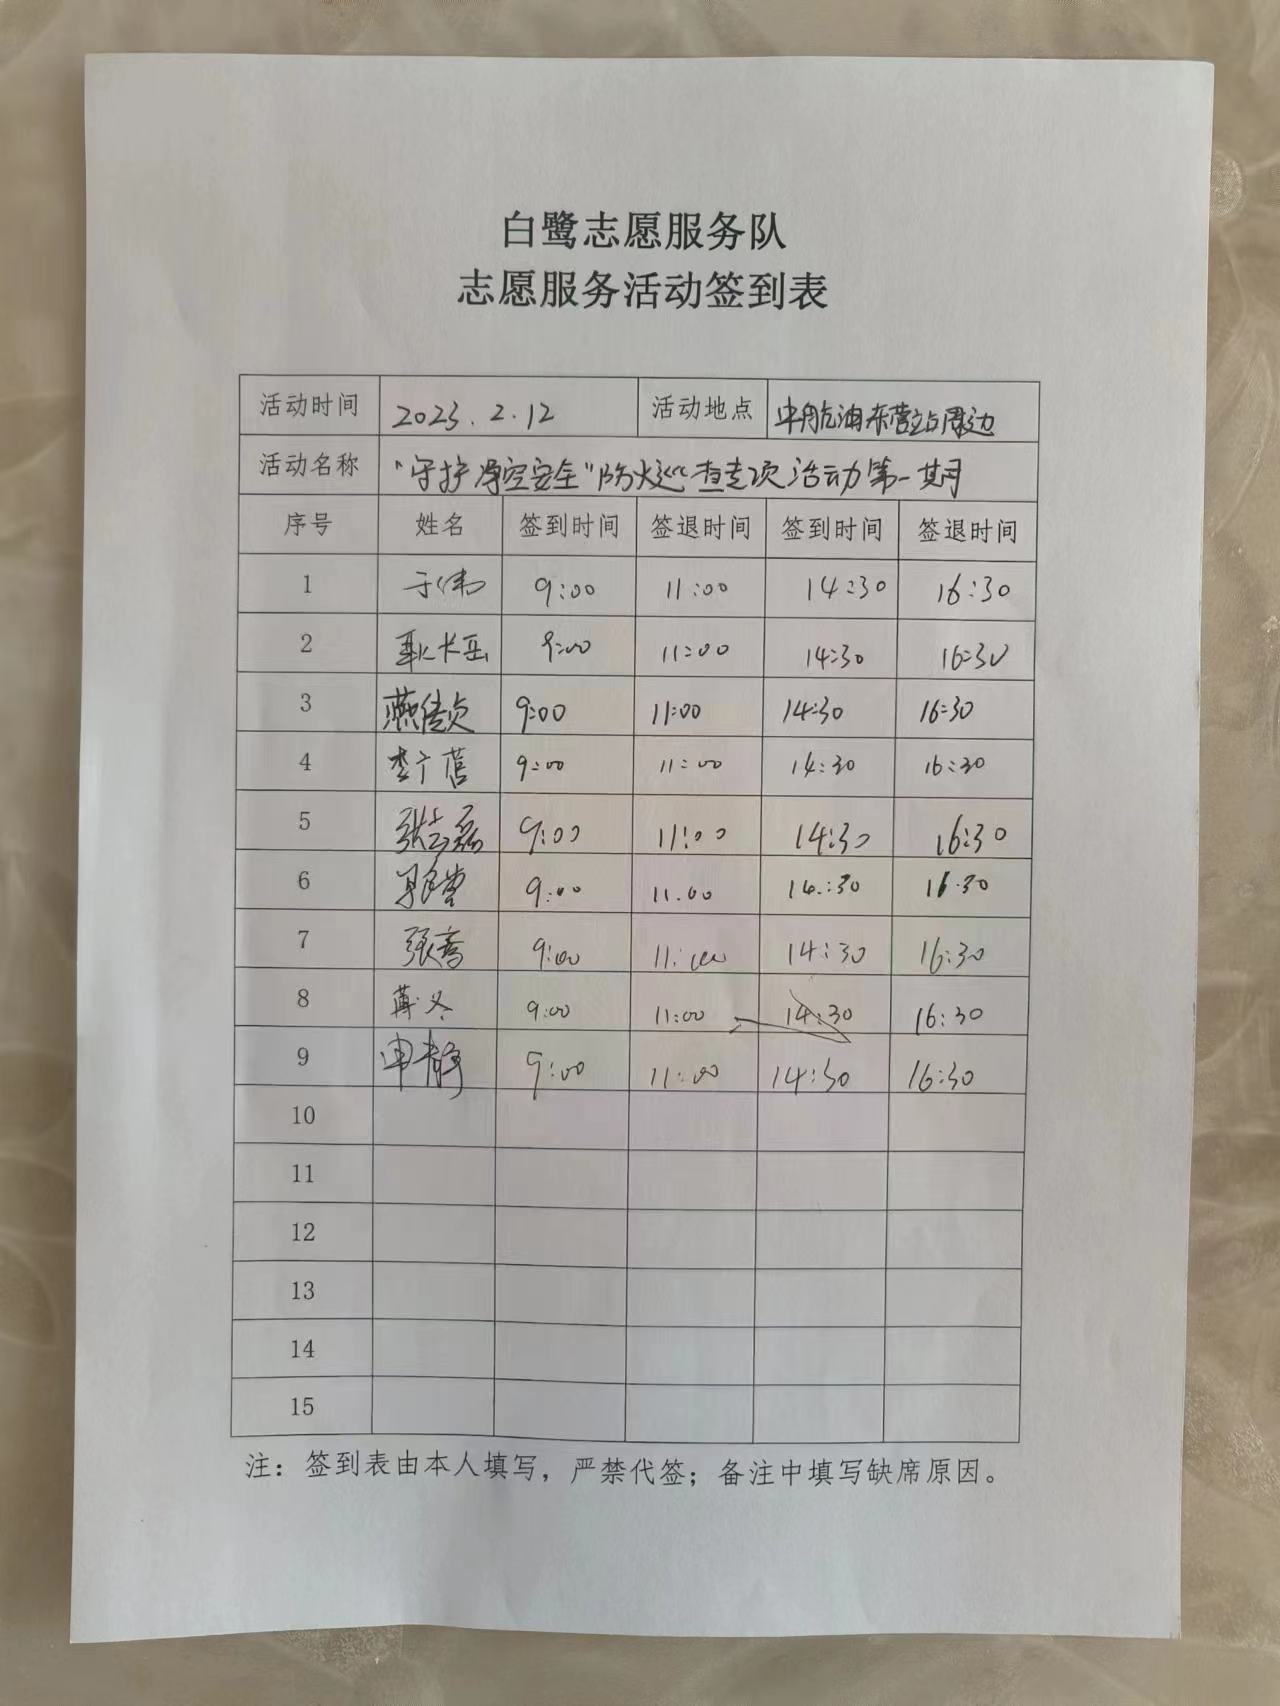 白鹭志愿服务队
志愿服务活动签到表
活动时间 2023.2.12 活动地点 中航油东营站周边
活动名称 “守护净空安全”防火巡查专项活动第一期
序号 姓名 签到时间 签退时间 签到时间 签退时间
1 于伟 9:00 11:00 14:30 16:30
2 耿长岳 9:00 11:00 14:30 16:30
3 燕佳贞 9:00 11:00 14:30 16:30
4 李广蓓 9:00 11:00 14:30 16:30
5 张志磊 9:00 11:00 14:30 16:30
6 9:00 11.00 14:30 16.30
7 张 9:00 11:00 14:30 16:30
8 薄冬 9:00 11:00 14:30 16:30
9 申静 9:00 11:00 14:30 16:30
10
11
12
13
14
15
注：签到表由本人填写，严禁代签；备注中填写缺席原因。